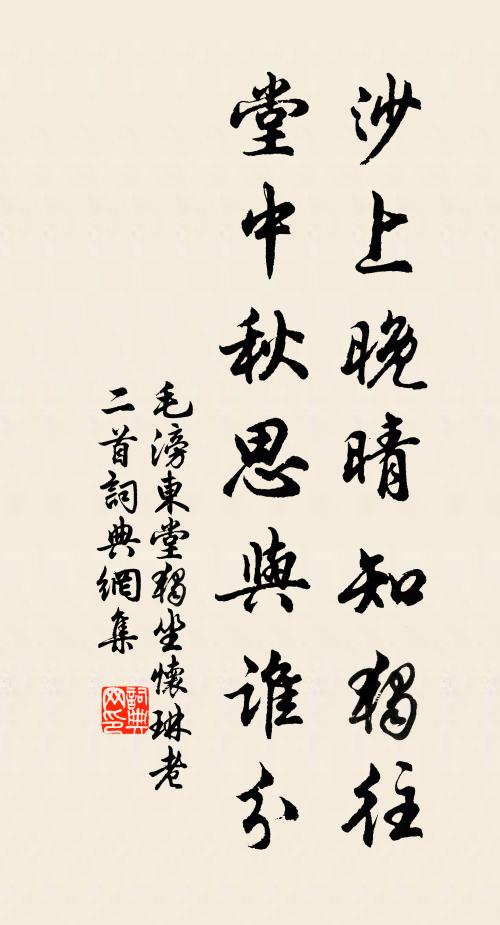 沙上晚晴知獨往
堂中秋思與誰分
毛滂東堂獨坐懷琳老
二首詞典網集
詞典網印